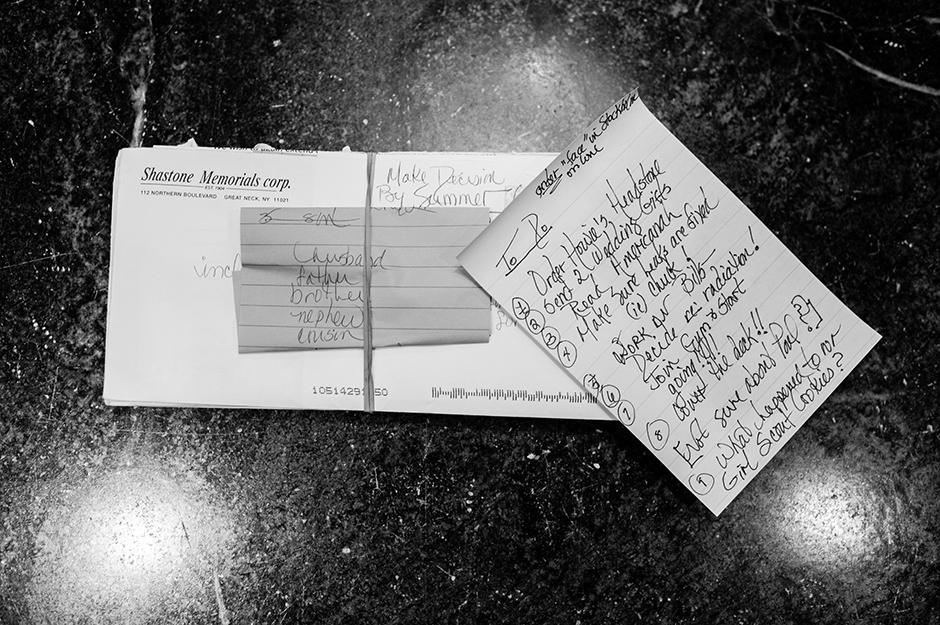 Shastone Memorials corp.
EST. 1904
112 NORTHERN BOULEVARD GREAT NECK, NY 11021
Make Decision
By Summer
son
husband
father
brother
nephew
cousin
1051429 50
order "face" in Stockholm
online
To Do
Order Howie's Headstone
Sent 2 Wedding Gifts
Read Americanah
Make sure leaks are fixed
(ie) check
Work on Bills
Decide on radiation!
Join Gym & start
going!!!
Cover the deck!!
[Not sure about Pool??]
What happened to our
Girl Scout Cookies?